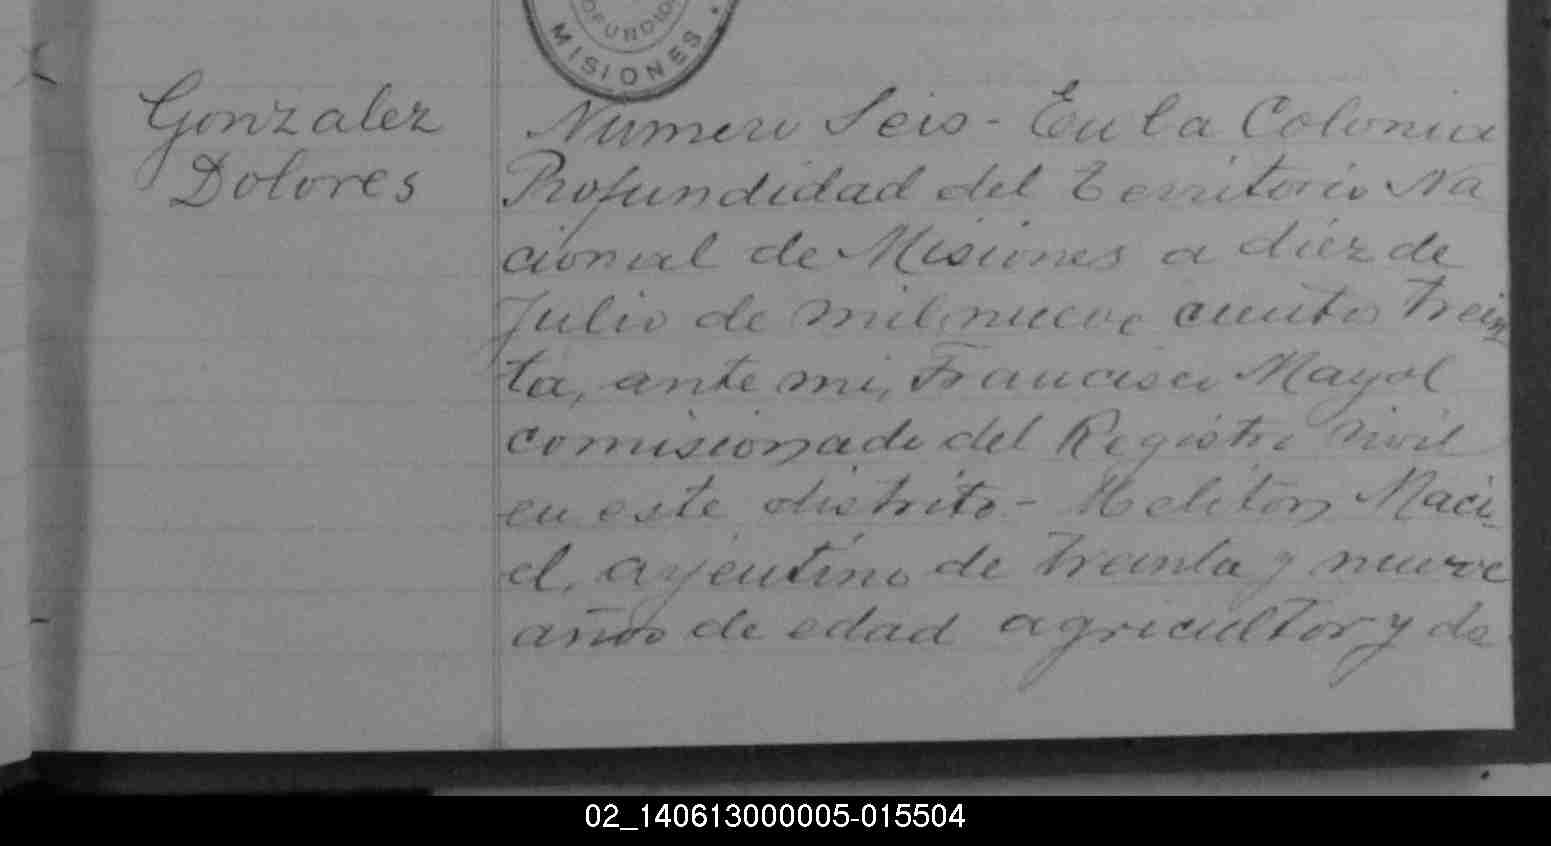 OFUNDID
MISIONES
Gonzalez
Dolores
Numero Seis - En la Colonia
Profundidad del Territorio Na
cional de Misiones a diez de
Julio de mil nueve cientos trein
ta, ante mi, Francisco Mayol
comisionado del Registro Civil
en este distrito - Meliton Maci
el, argentino de treinta y nueve
años de edad agricultor y de
02_140613000005-015504